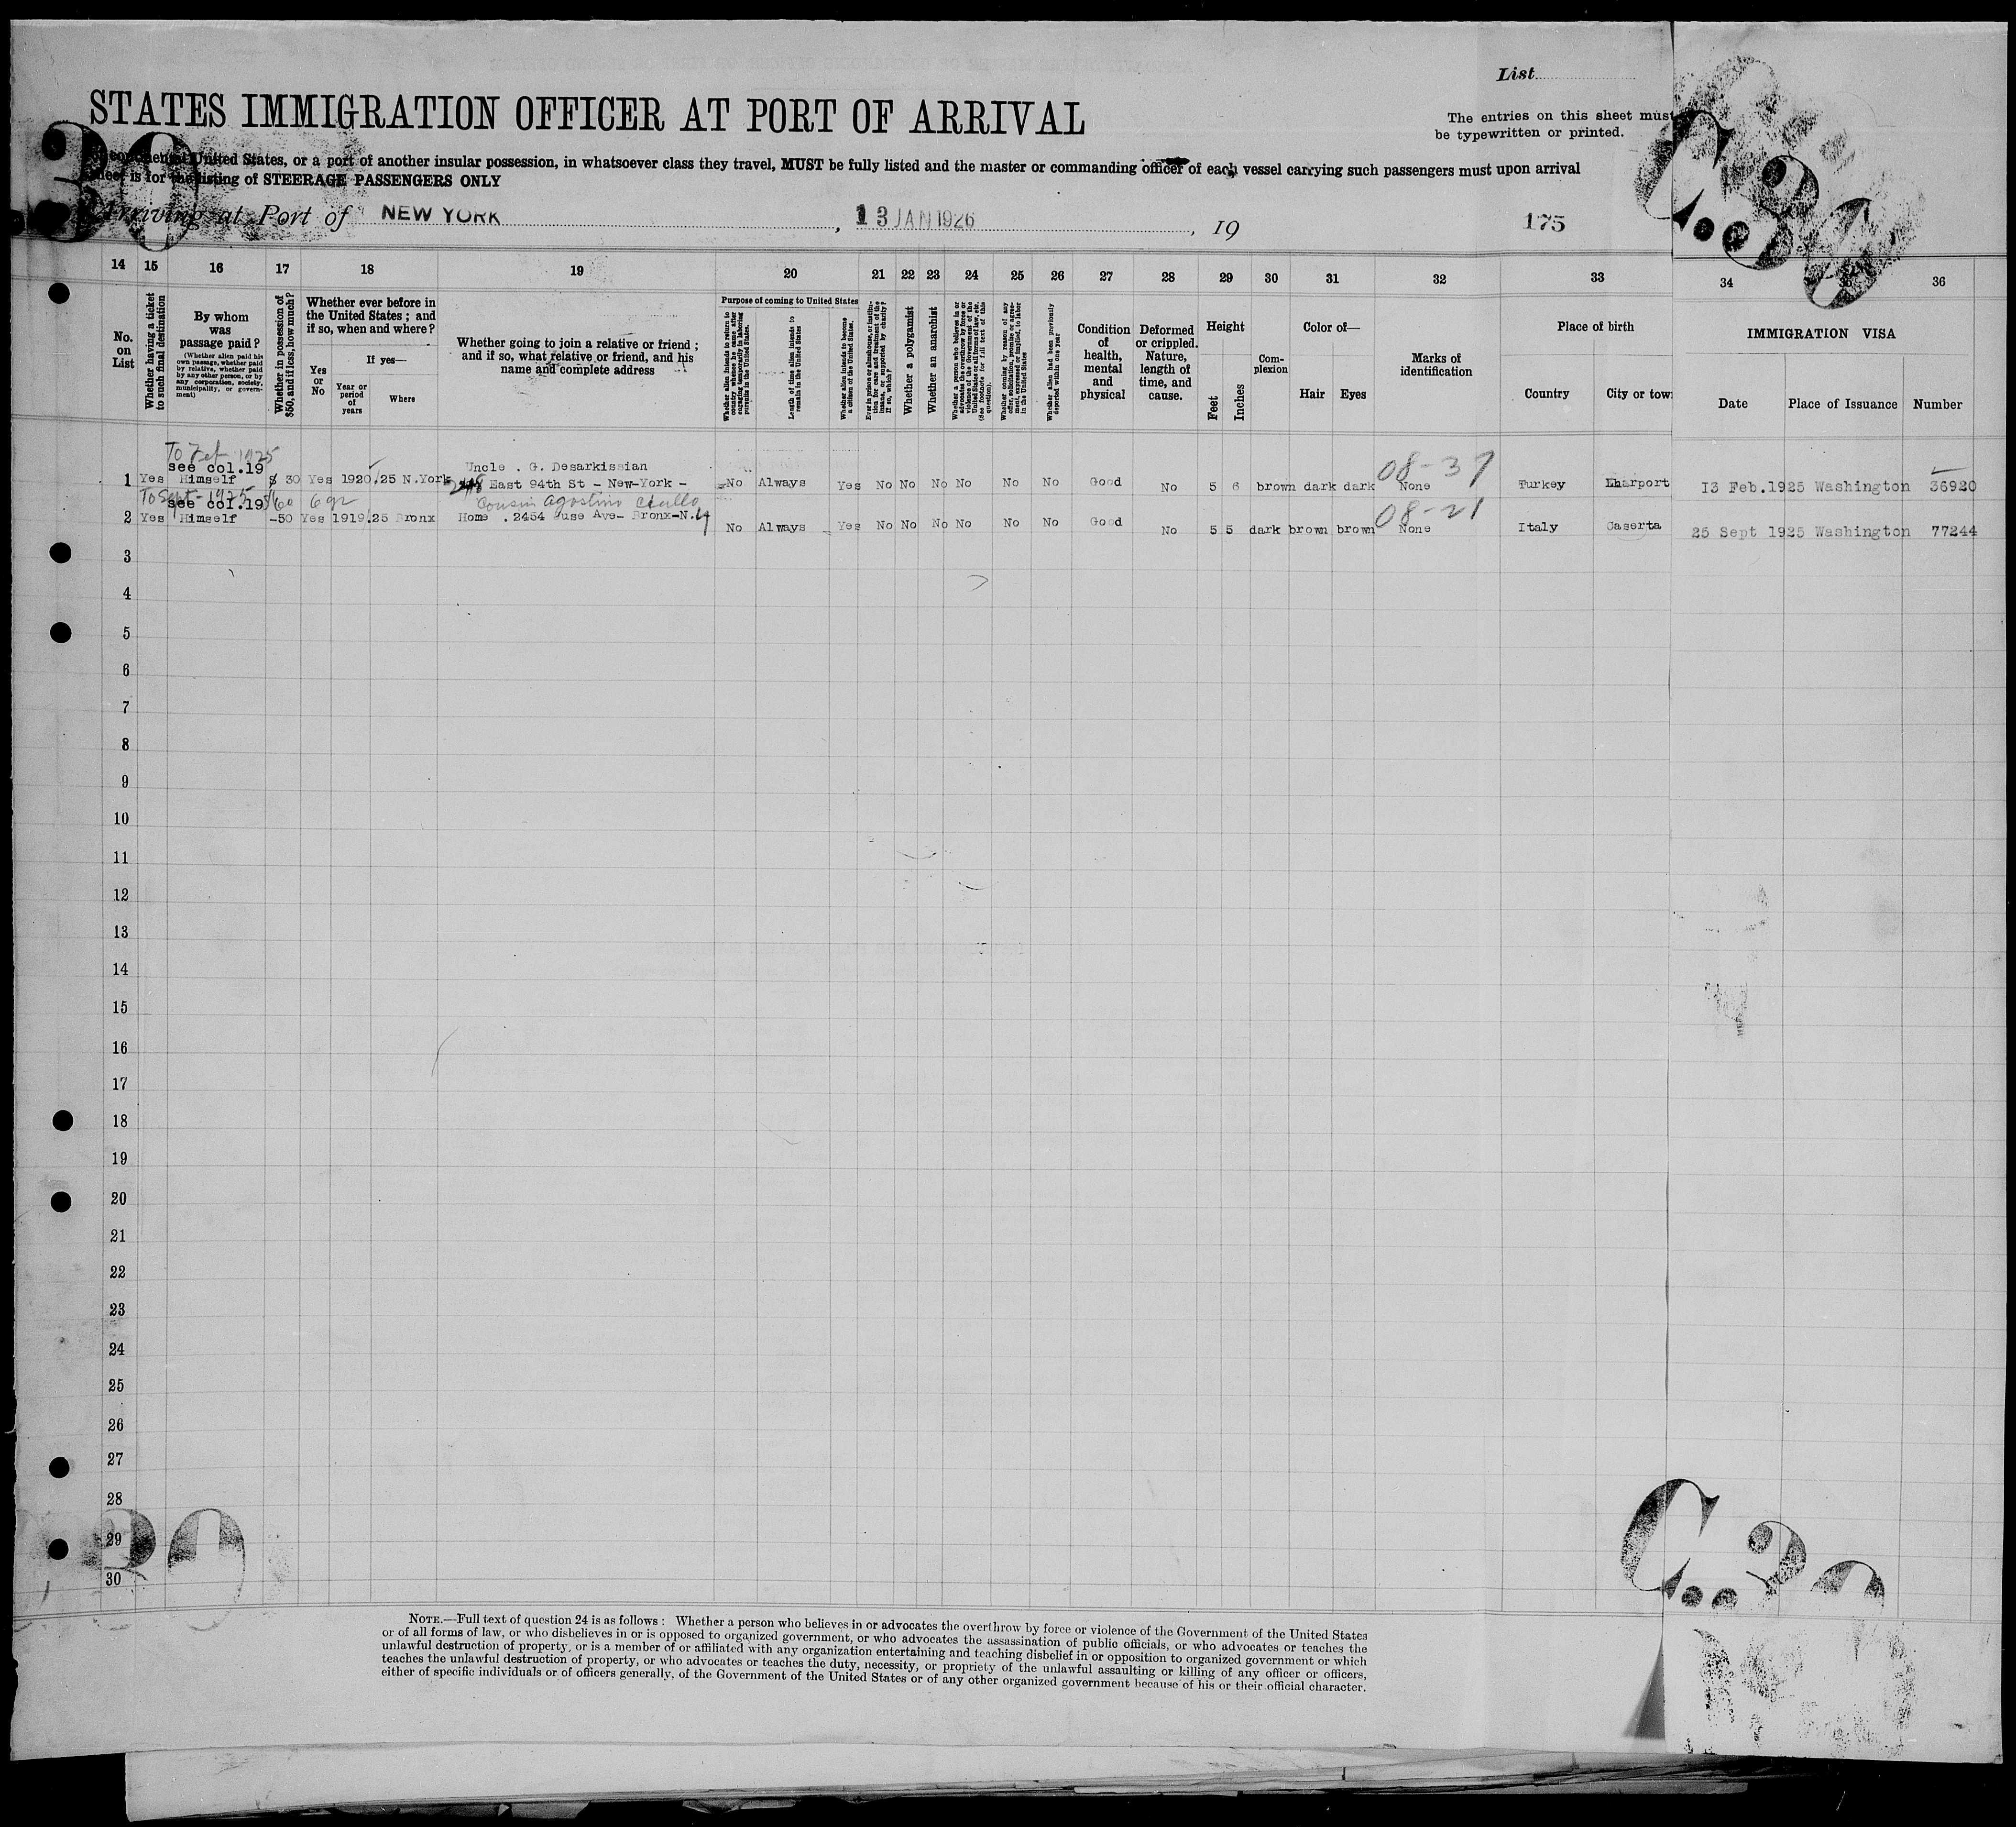 List
STATES IMMIGRATION OFFICER AT PORT OF ARRIVAL
The entries on this sheet must
be typewritten or printed.
United States, or a port of another insular possession, in whatsoever class they travel, MUST be fully listed and the master or commanding officer of each vessel carrying such passengers must upon arrival
sheet is for the listing of STEERAGE PASSENGERS ONLY
Arriving at Port of NEW YORK, 13 JAN 1926, 19
175
30
14 15 16 17 18 19 20 21 22 23 24 25 26 27 28 29 30 31 32 33 34 36
No. on List
Whether having a ticket to such final destination
By whom was passage paid?
(Whether alien paid his own passage, whether paid by relative, whether paid by any other person, or by any corporation, society, municipality, or government)
Whether in possession of $50, and if less, how much?
Whether ever before in the United States; and if so, when and where?
Yes or No
If yes—
Year or period of years
Where
Whether going to join a relative or friend; and if so, what relative or friend, and his name and complete address
Purpose of coming to United States
Whether alien intends to return to country whence he came after engaging temporarily in laboring pursuits in the United States.
Length of time alien intends to remain in the United States
Whether alien intends to become a citizen of the United States.
Ever in prison or almshouse, or institution for care and treatment of the insane, or supported by charity? If so, which?
Whether a polygamist
Whether an anarchist
Whether a person who believes in or advocates the overthrow by force or violence of the Government of the United States or all forms of law, etc. (See footnote for full text of this question).
Whether coming by reason of any offer, solicitation, promise or agreement, expressed or implied, to labor in the United States
Whether alien had been previously deported within one year
Condition of health, mental and physical
Deformed or crippled. Nature, length of time, and cause.
Height
Feet
Inches
Complexion
Color of—
Hair
Eyes
Marks of identification
Place of birth
Country
City or tow
IMMIGRATION VISA
Date
Place of Issuance
Number
To Feb 1925
see col.19 Uncle . G. Desarkissian 08-37
1 Yes Himself $ 30 Yes 1920/25 N.York East 94th St - New-York - No Always Yes No No No No No No Good No 5 6 brown dark dark None Turkey Kharport 13 Feb.1925 Washington 36920
To Sept - 1925
see col.19 60 Cousin Agostino 08-21
2 Yes Himself -50 Yes 1919/25 Bronx Home . 2454 Ave- Bronx-N.Y No Always Yes No No No No No No Good No 5 5 dark brown brown None Italy Caserta 25 Sept 1925 Washington 77244
3
4
5
6
7
8
9
10
11
12
13
14
15
16
17
18
19
20
21
22
23
24
25
26
27
28
29
30
NOTE.—Full text of question 24 is as follows: Whether a person who believes in or advocates the overthrow by force or violence of the Government of the United States
or of all forms of law, or who disbelieves in or is opposed to organized government, or who advocates the assassination of public officials, or who advocates or teaches the
unlawful destruction of property, or is a member of or affiliated with any organization entertaining and teaching disbelief in or opposition to organized government or which
teaches the unlawful destruction of property, or who advocates or teaches the duty, necessity, or propriety of the unlawful assaulting or killing of any officer or officers,
either of specific individuals or of officers generally, of the Government of the United States or of any other organized government because of his or their official character.